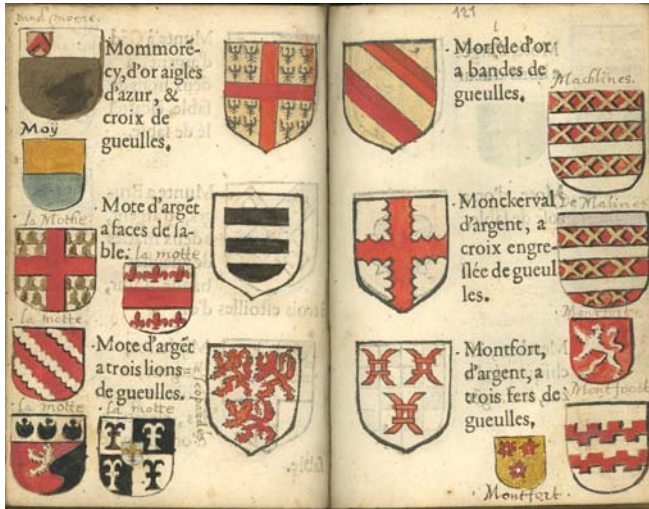 Mommorē-
cy, d'or aigles
d'azur, &
croix de
gueulles.
Moÿ
la Mothe
Mote d'argēt
a faces de sa-
ble.
la motte
la motte
Mote d'argēt
a trois lions
de gueulles.
la motte
la motte
121
Morsele d'or
a bandes de
gueulles.
Machlines.
Monckerval
d'argent, a
croix engre-
slée de gueul
les.
De Malines
Montfort,
d'argent, a
trois fers de
gueulles,
Montfoort
Montfort.